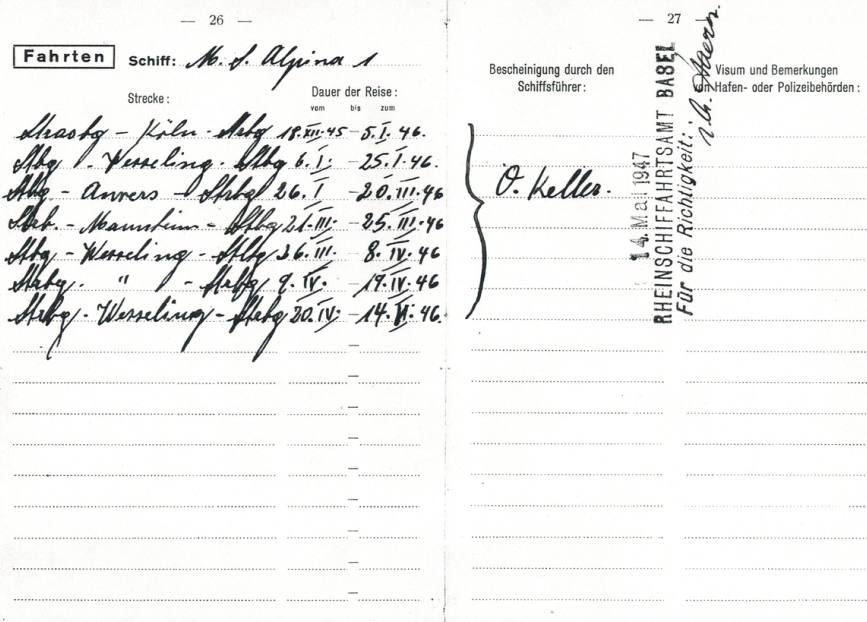 — 26 —
Fahrten Schiff: M. S. Alpina 1
Strecke: Dauer der Reise:
vom bis zum
Strasbg - Köln - Strbg 18.XII.45 - 5.I.46.
Stbg - Wesseling - Stbg 6.I. - 25.I.46.
Stbg - Anvers - Strbg 26.I - 20.III.46
Strb. - Mannheim - Stbg 21.III. - 25.III.46
Stbg - Wesseling - Stbg 26.III. - 8.IV.46
Strbg. " - Strbg 9.IV. - 19.IV.46
Strbg - Wesseling - Strbg 20.IV. - 14.VI.46.
— 27 —
Bescheinigung durch den
Schiffsführer:
Visum und Bemerkungen
von Hafen- oder Polizeibehörden:
O. Keller.
14. Mai 1947
RHEINSCHIFFAHRTSAMT BASEL
Für die Richtigkeit: